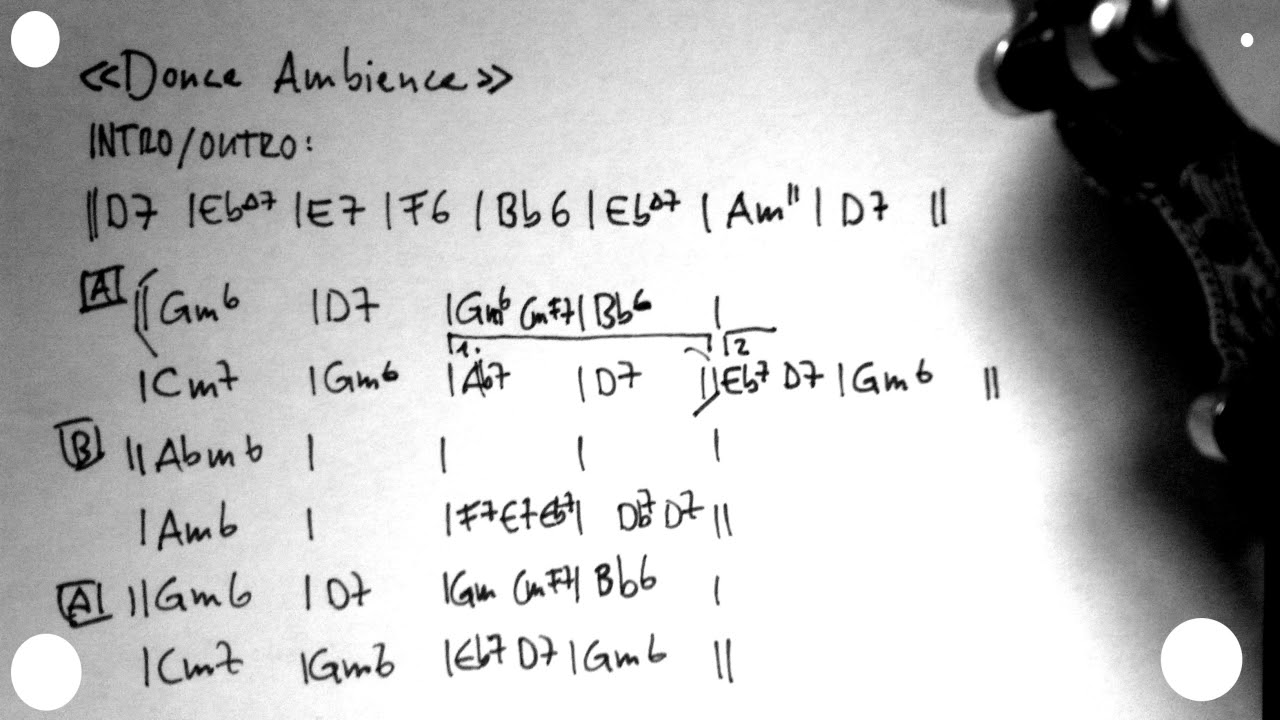 <<Dance Ambience>>
INTRO/OUTRO:
||D7 |EbΔ7 |E7 |F6 |Bb6 |EbΔ7 |Am11 |D7 ||
A ||Gm6 |D7 |Gm6 Cm7 F7|Bb6 |
1. 2
|Cm7 |Gm6 |Ab7 |D7 ||Eb7 D7 |Gm6 ||
B ||Abm6 | | | |
|Am6 | |F7 E7 Eb7| Db7 D7 ||
A ||Gm6 |D7 |Gm Cm7 F7|Bb6 |
|Cm7 |Gm6 |Eb7 D7 |Gm6 ||